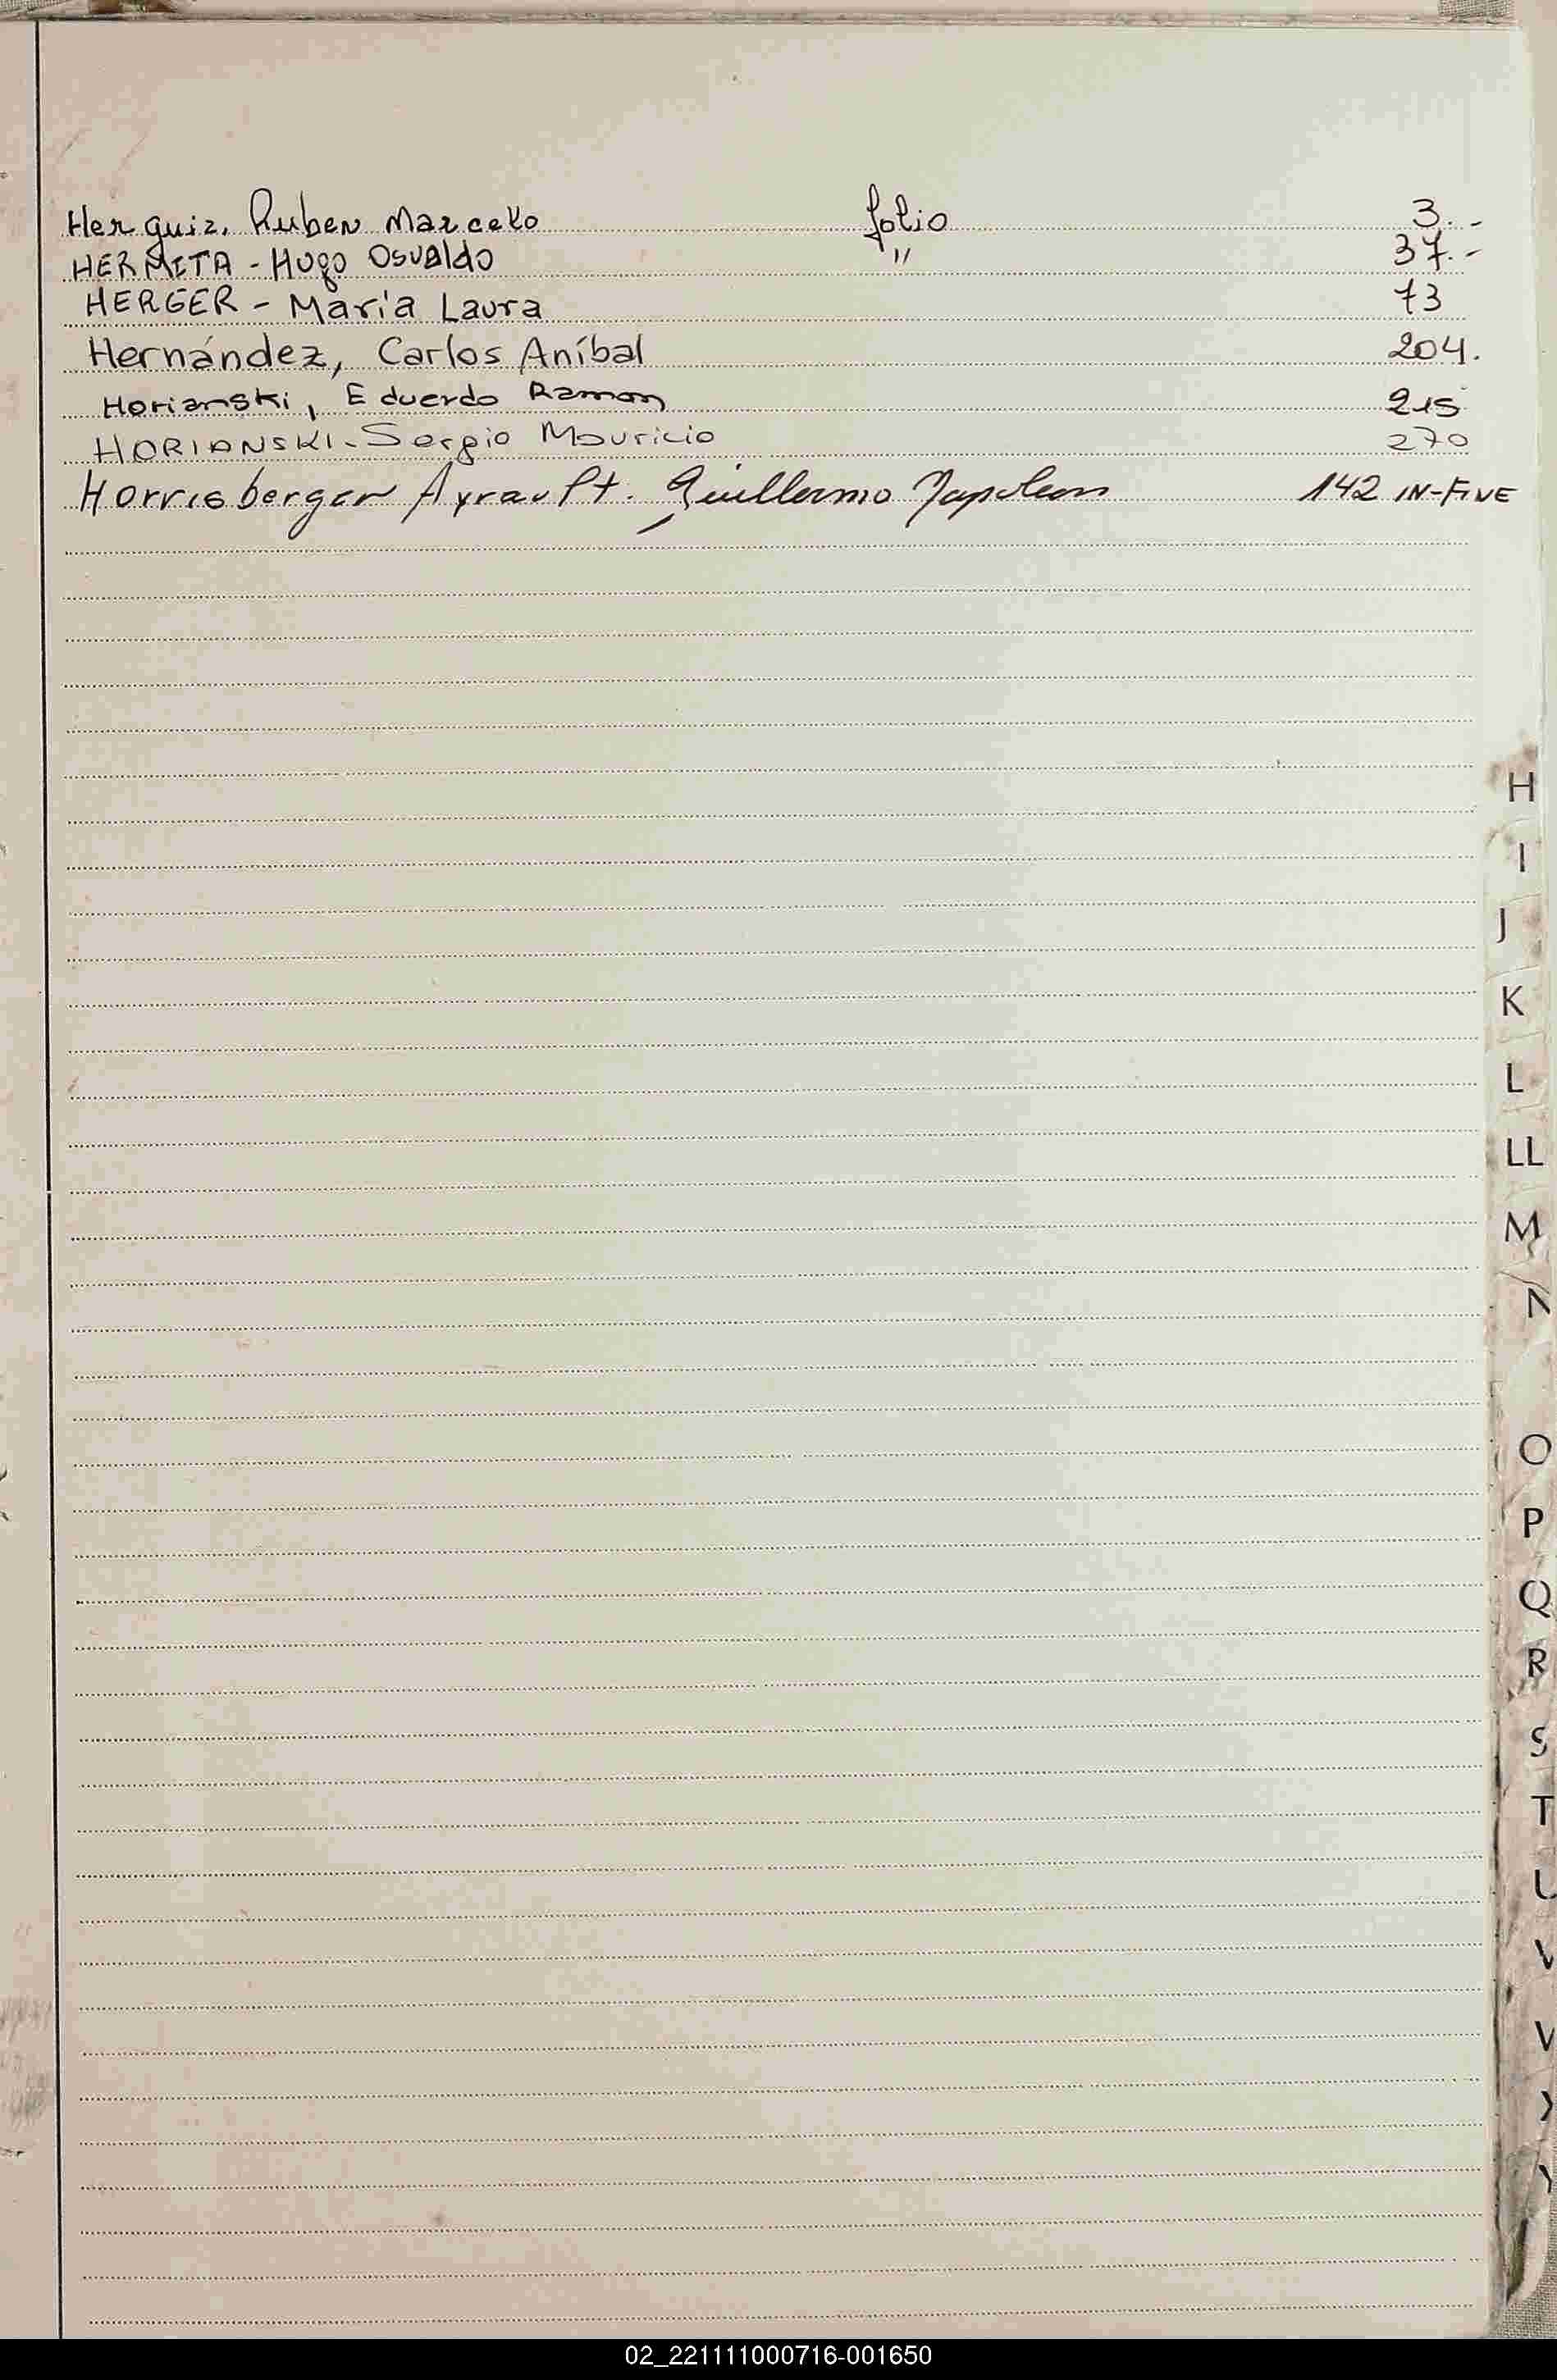 Herguiz, Ruben Marcelo folio 3.-
HERMITA - Hugo Osvaldo " 37.-
HERGER - Maria Laura 73
Hernández, Carlos Aníbal 204.
Horianski, Eduardo Ramon 215
HORIANSKI - Sergio Mauricio 270
Horrisberger Ayrault, Guillermo Napoleon 142 IN-FINE
H
I
J
K
L
LL
M
N
O
P
Q
R
S
T
U
V
V
X
Y
02_221111000716-001650